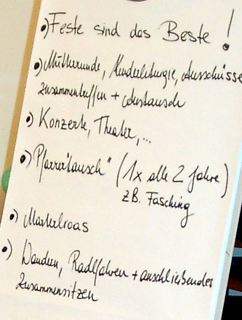 • Feste sind das Beste!
• Mütterrunde, Kinderliturgie, Ausschüsse
Zusammentreffen + Austausch
• Konzerte, Theater,...
• "Pfarreitausch" (1x alle 2 Jahre)
z.B. Fasching
•) Maskelroas
•) Wandern, Radlfahren + anschließendes
Zusammensitzen